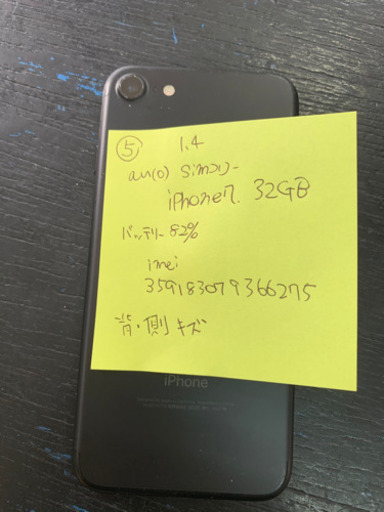 ⑤ 1.4
au(○) Simフリー
iPhone7. 32GB
バッテリー 82%
imei
359183079366275
背・側 キズ
iPhone